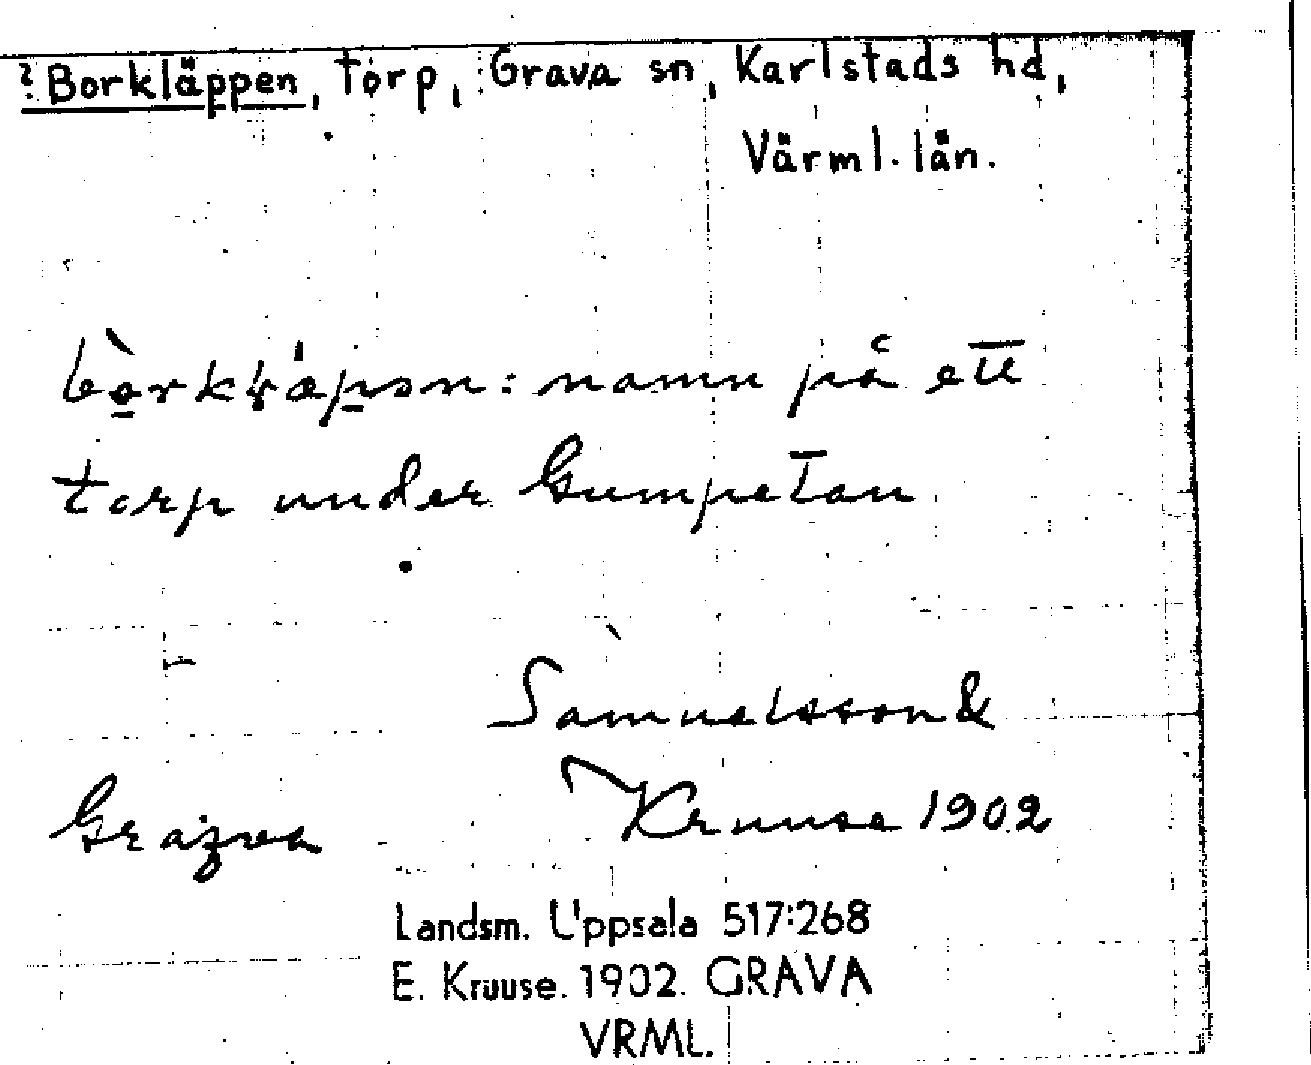 ? Borkläppen, torp, Grava sn, Karlstads hd,
Värml. län.
namn på ett
torp under Gumpetan
Samuelsson &
Kruuse 1902
Landsm. Uppsala 517:268
E. Kruuse. 1902. GRAVA
VRML.